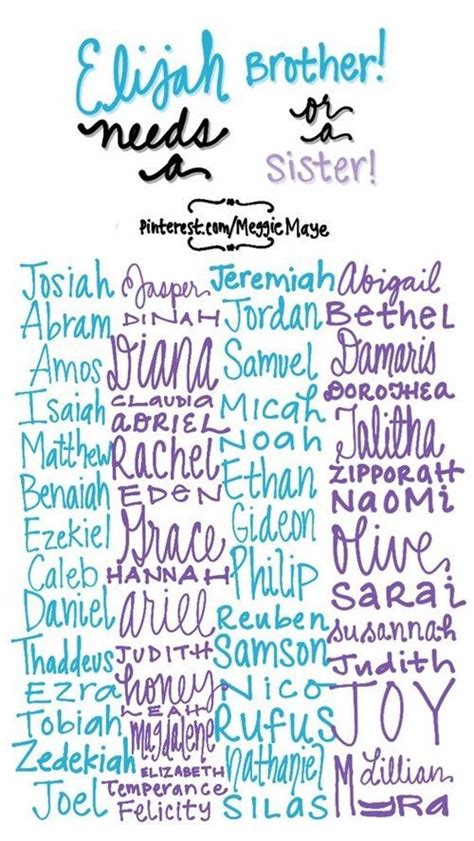 Elijah Brother!
needs or
a a
Sister!
Pinterest.com/MeggieMaye
Josiah Jasper Jeremiah Abigail
Abram DINAH Jordan Bethel
Amos Diana Samuel Damaris
Isaiah CLAUDIA Micah DOROTHEA
Matthew ADRIEL Noah Talitha
Benaiah Rachel Ethan ZIPPORAH
Ezekiel EDEN Gideon NAOMi
Caleb Grace Philip Olive
Daniel HANNAH Reuben SARAi
Thaddeus ariel Samson Susannah
Ezra JUDITH Nico Judith
Tobiah honey Rufus JOY
Zedekiah LEAH Nathaniel Lillian
Joel Magdalene SILAS Myra
ELIZABETH
Temperance
Felicity